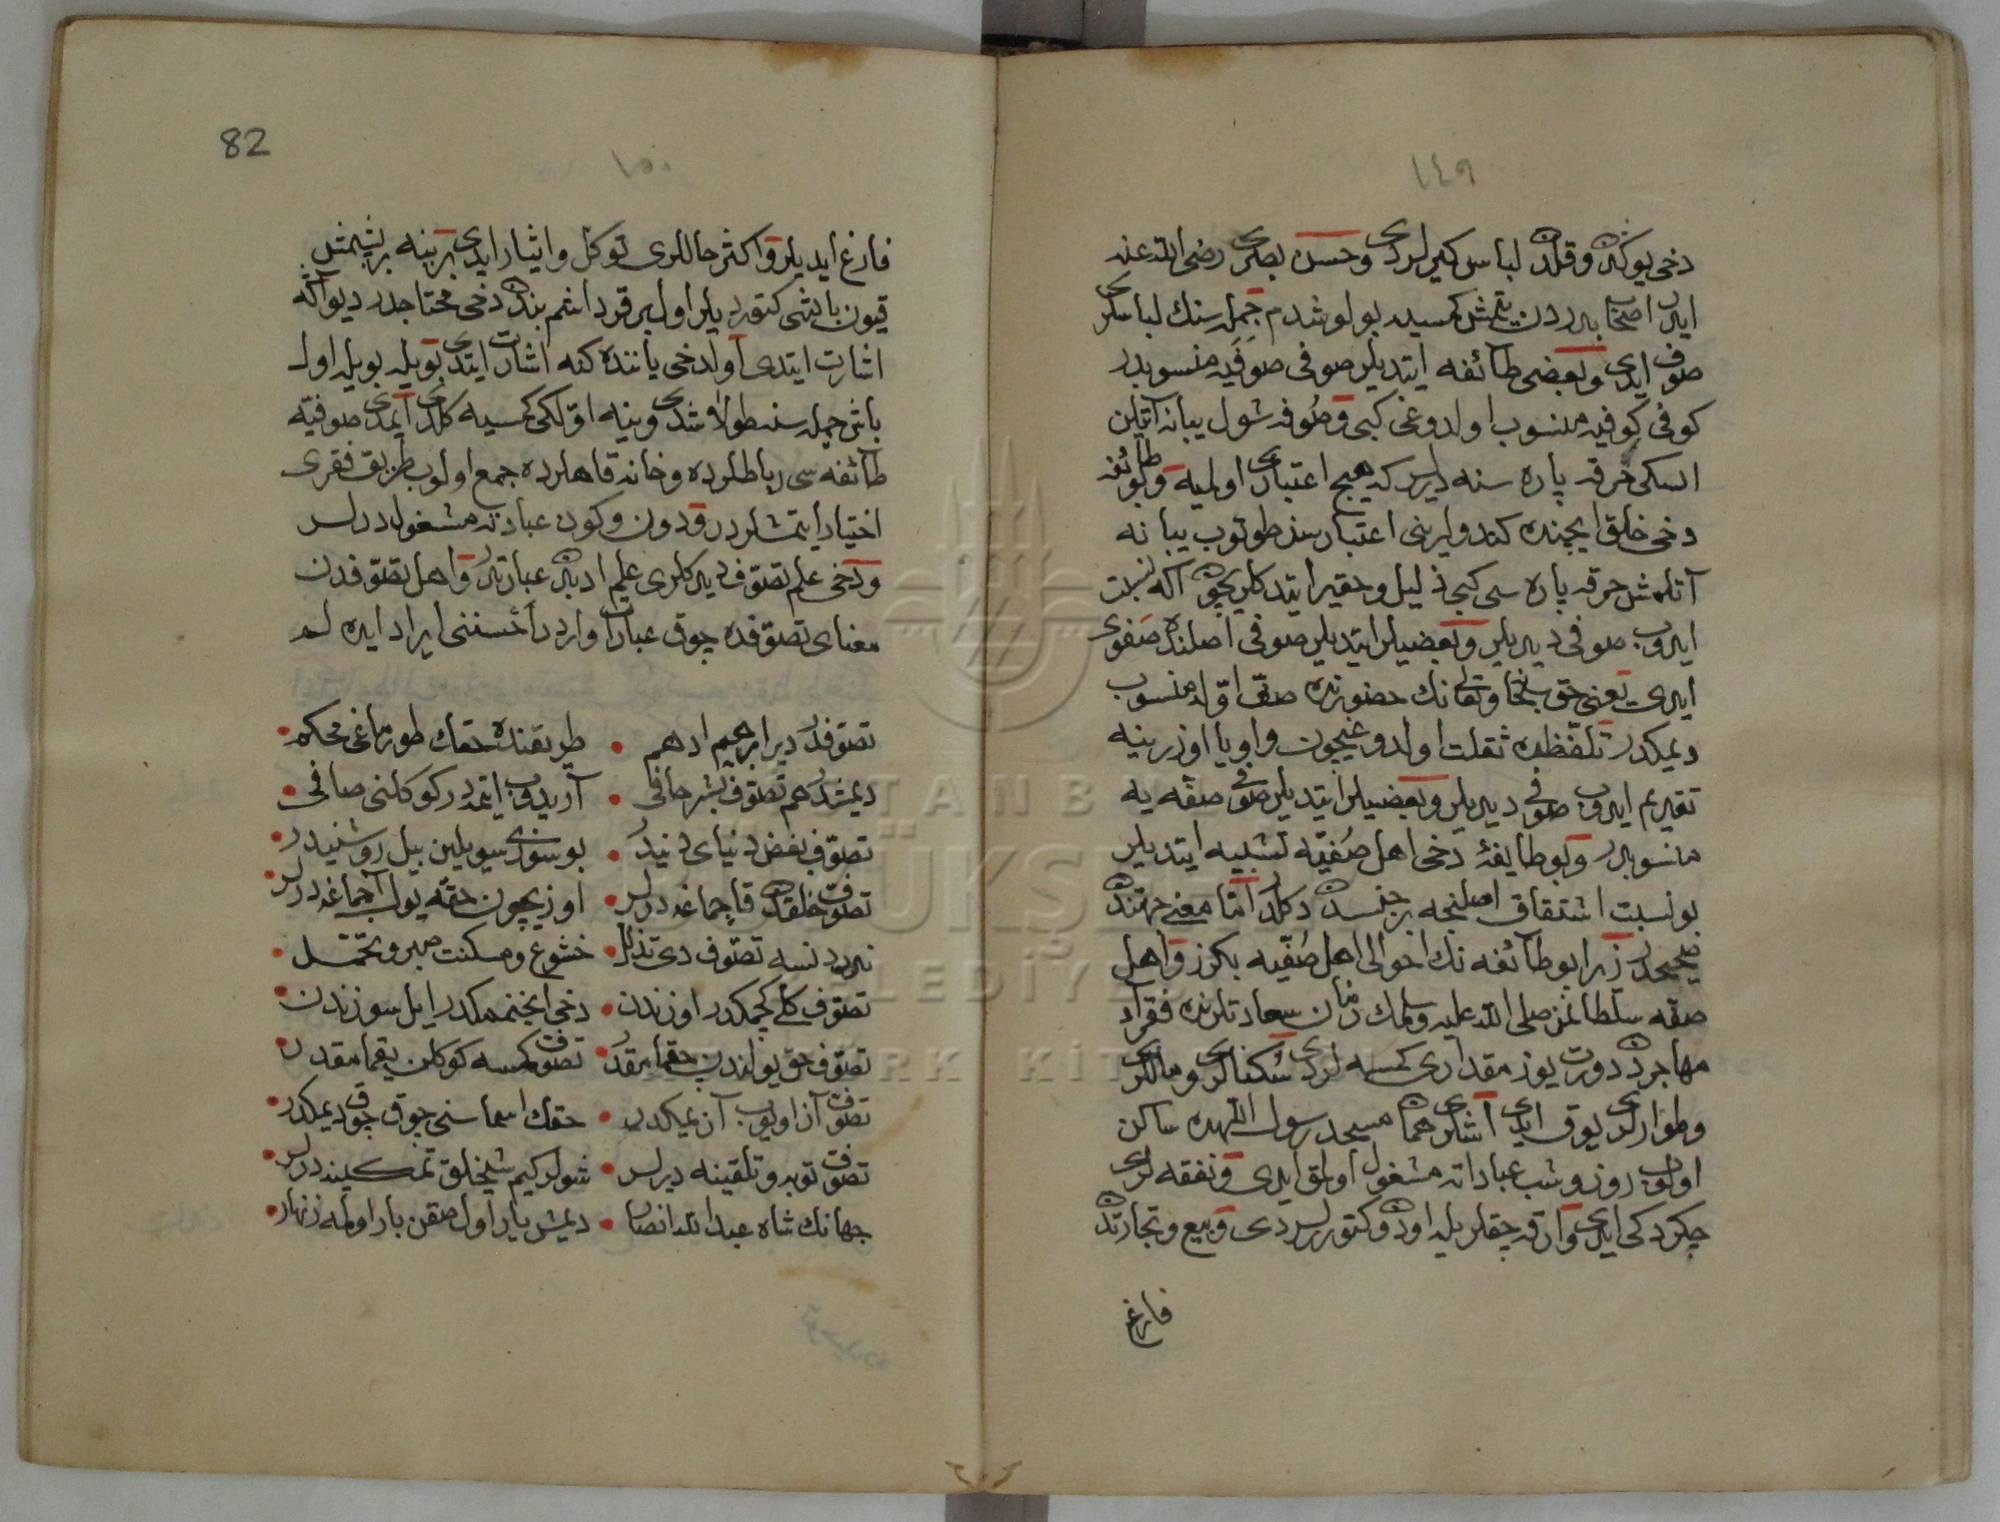 ١٤٩
دخی یوكدن و قلدن لباس كیرلردی و حسن بصری رضی الله عنه
ایدر اصحاب بدردن یتمش كمسیه بولوشدم جمله سنك لباسلری
صوف ایدی و بعضی طائفه ایتدیلر صوفی صوفیه منسوبدر
كوفی كوفیه منسوب اولدوغی كبی و صوفه شول یبانه آتیلن
اسكی خرقه پاره سنه دیرلر كه هیچ اعتباری اولمیه و بو طائفه
دخی خلق ایچنده كندولرینی اعتبارسز طوتوب یبانه
آتلمش خرقه پاره سی كبی ذلیل و حقیر ایتدكلریچون آكه نسبت
ایدوب صوفی دیدیلر و بعضیلر ایتدیلر صوفی اصلنده صفوی
ایدی یعنی حق سبحانه و تعالی نك حضورنده صف اوّله منسوب
دیمكدر تلفظده ثقلت اولدوغیچون واو یا اوزرینه
تقدیم ایدوب صوفی دیدیلر و بعضیلر ایتدیلر صوفی صفّه یه
منسوبدر و بو طایفۀ دخی اهل صُفّیه تشبیه ایتدیلر
بو نسبت اشتقاق اصلنجه بر جنسدن دكلدر امّا معنی جهتندن
صحیحدر زیرا بو طائفه نك احوالی اهل صُفّیه بكزر و اهل
صفّه سلطانمز صلی الله علیه وسلمك زمان سعادتلرنده فقراء
مهاجردن دورت یوز مقداری كمسه لردی سُكنالری و ماللری
و طوارلری یوق ایدی اشلری هما مسجد رسول اللهده ساكن
اولوب روز و شب عباداته مشغول اولمق ایدی و نفقه لری
چكردكی ایدی و ارقه چقلریله اودون كتورلردی و بیع و تجارتدن
فارغ
82
١٥٠
فارغ ایدیلر و اكثر حاللری توكل و ایثار ایدی بربینه بر پشمش
قیون باشی كتوردیلر اول بر قرداشم بندن دخی محتاجدر دیو آكه
اشارت ایتدی اولدخی یاننده كنه اشارت ایتدی بویله بویله اول
باش جمله سنه طولاشدی و ینه اوّلكی كمسیه كلدی ایمدی صوفیّه
طائفه سی رباطلرده و خانه قاهلرده جمع اولوب طریق فقری
اختیار ایتمشلردر و دون و كون عبادته مشغولدرلر
و دخی علم تصوّف دیدكلری علم ادبدن عبارتدر و اهل تصوّفدن
معنای تصوّفده چوق عبارات وارد در أحسننی ایراد ایده لم
تصوّفدر دیر ابرهیم ادهم • طریقنده حقك طورماغی محكم •
دیمشدر هم تصوّف بشر حافی • آریدوب ایتمدر كوكلنی صافی •
تصوّف بغض دنیای دنیدر • بو سوزی سویلین بیل روشنیدر •
تصوّف خلقدن قاچماغه دیرلر • اوزیچون حقّه یول آچماغه دیرلر •
نه در نسه تصوّف دی تذلل • خشوع و مسكنت صبر و تحمّل •
تصوّف كلی كچمكدر اوزندن • دخی اینجنممكدر ایل سوزندن •
تصوّف حق یولندن چقمامقدر • تصوّف كمسه كوكلن یقمامقدر •
تصوّف آز اویوب آز یمكدر • حقك اسماسنی چوق چوق دیمكدر •
تصوّف توبه و تلقینه دیرلر • شولر كیم شیخلق تمكینه دیرلر •
جهانك شاه عبدالله انصار • دیمش یار اول صقن بار اولمه زنهار •